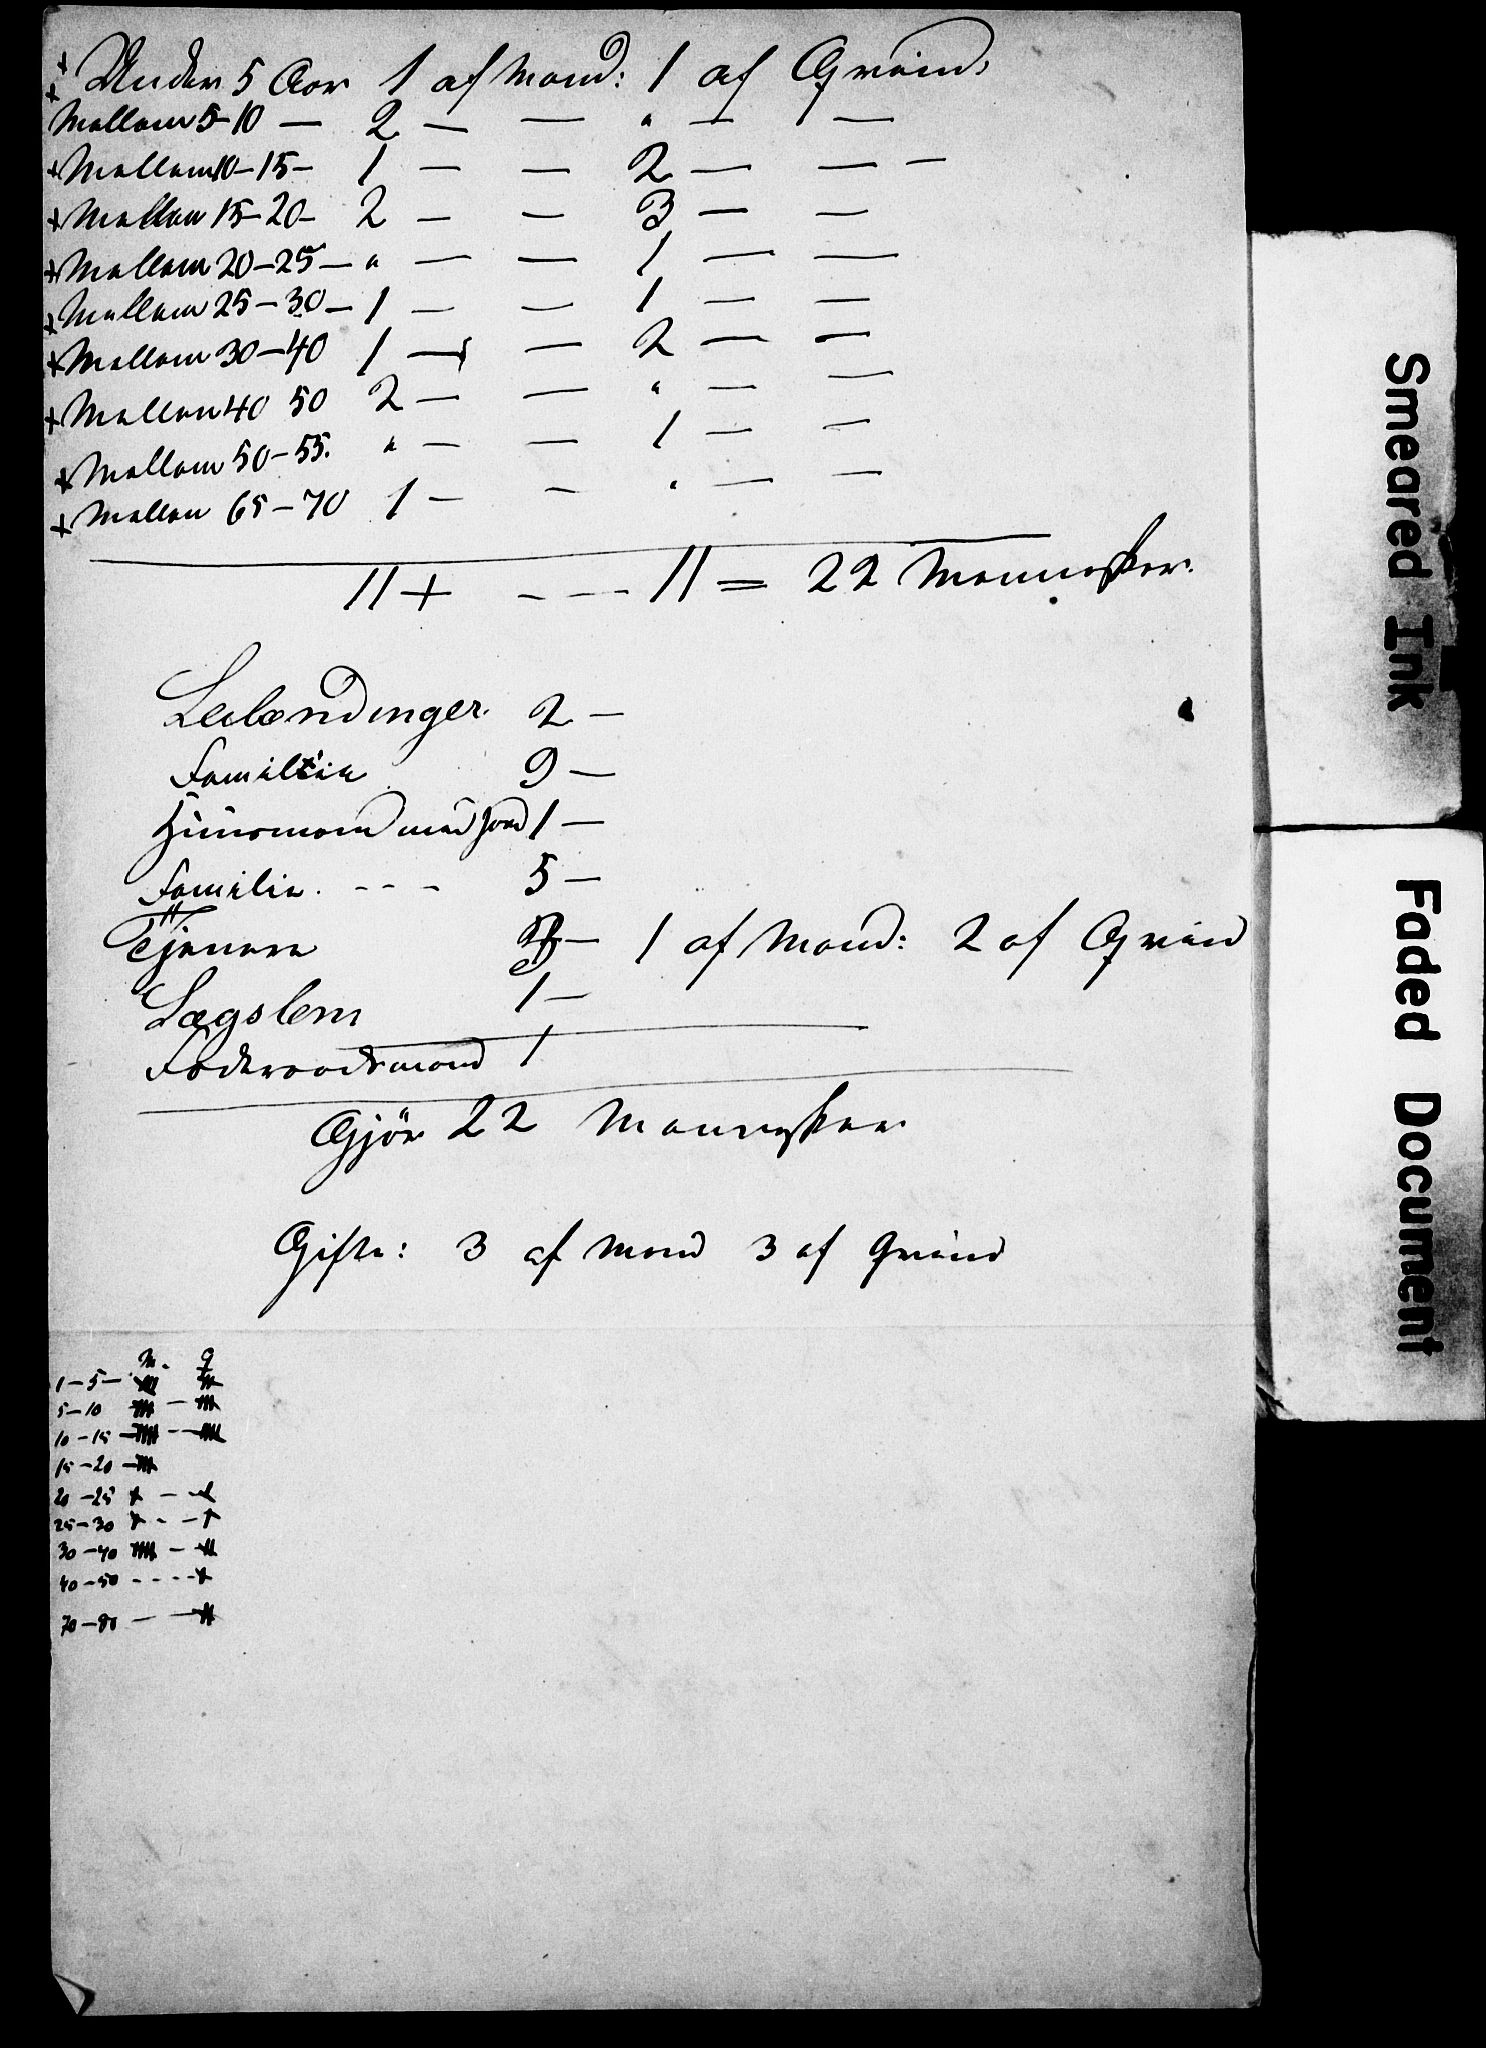 + Under 5 Aar 1 af Mand: 1 af Qvind:
+ Mellem 5-10 — 2 — — " — —
+ Mellem 10-15- 1 — — 2 — — —
+ Mellem 15-20- 2 — — 3 — —
+ Mellem 20-25 — " — — 1 — —
+ Mellem 25-30 — 1 — — 1 — —
+ Mellem 30-40 1 — — 2 — —
+ Mellem 40 50 2 — — " — —
+ Mellem 50-55. " — — 1 — —
+ Mellem 65-70 1 — — " — —
11 + - - - 11 = 22 Mennesker.
Leilændinger. 2 —
Familie 9 —
Huusmand med Jord 1 —
Familie. - - - 5 —
Tjenere 3 — 1 af Mand: 2 af Qvind
Lægslem 1 —
Föderaadsmand 1
Gjör 22 Mennesker
Gifte: 3 af Mand 3 af Qvind
M. Q
1-5-
5-10 -
10-15 - --
15-20 -
20-25 - -
25-30 - -
30-40 -
40-50 - - - -
70-80 — —
Smeared Ink
Faded Document